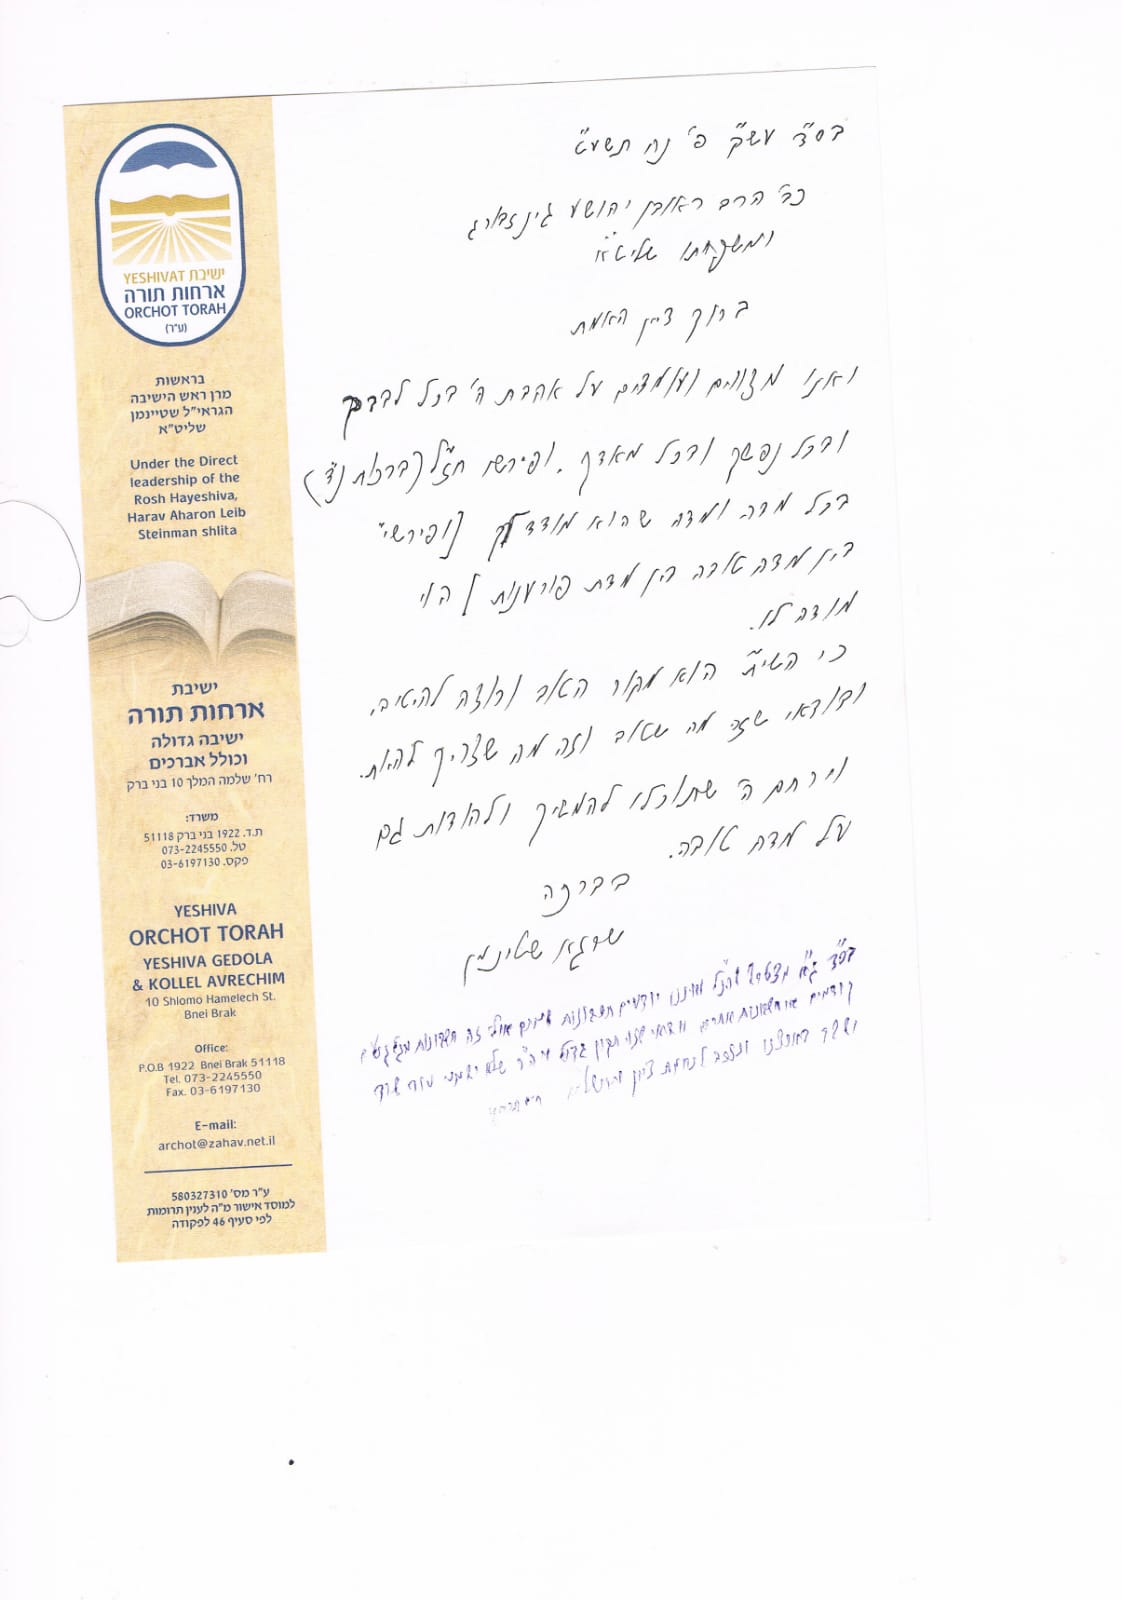 YESHIVAT ישיבת
ארחות תורה
ORCHOT TORAH
(ע"ר)
בראשות
מרן ראש הישיבה
הגראי"ל שטיינמן
שליט"א
Under the Direct
leadership of the
Rosh Hayeshiva,
Harav Aharon Leib
Steinman shlita
ישיבת
ארחות תורה
ישיבה גדולה
וכולל אברכים
רח' שלמה המלך 10 בני ברק
משרד:
ת.ד. 1922 בני ברק 51118
טל. 073-2245550
פקס. 03-6197130
YESHIVA
ORCHOT TORAH
YESHIVA GEDOLA
& KOLLEL AVRECHIM
10 Shlomo Hamelech St.
Bnei Brak
Office:
P.O.B 1922 Bnei Brak 51118
Tel. 073-2245550
Fax. 03-6197130
E-mail:
archot@zahav.net.il
ע"ר מס' 580327310
למוסד אישור מ"ה לענין תרומות
לפי סעיף 46 לפקודה
בס"ד עש"ק פ' נח תשע"ט
כב' הרב ראובן יהושע גינזבורג
ומשפחתו שליט"א
ברוך דיין האמת
ואנו מצווים ועומדים על אהבת ה' בכל לבבך
ובכל נפשך ובכל מאדך. ופירשו חז"ל (ברכות נ"ד)
בכל מדה ומדה שהוא מודד לך [ופירש"י
בין מדה טובה בין מדת פורענות] הוי
מודה לו.
כי השי"ת הוא מקור הטוב ורוצה להיטיב,
ובודאי שזה מה שטוב וזה מה שצריך להיות.
וירחם ה' שתוכלו להמשיך ולהודות גם
על מדה טובה.
בברכה
שרגא שטינמן
בס"ד מצטרף לכל יודעים חשבונות שמים אולי זה חשבונות מגלגולים
קודמים או חשבונות אחרים ובודאי שזהו תקון גדול שלא ישמע עוד שוד
ושבר ונזכה לנחמת ציון וירושלים